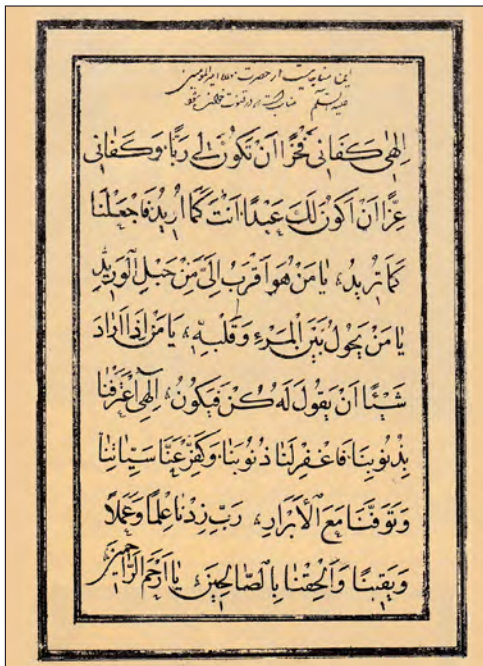 این مناجاتیست از حضرت مولا امیرالمومنین
علیه السلام مناسب است در قنوت خوانده شود
اِلهٰی کَفانی فَخْرًا اَنْ تَکُونَ لی رَبًّا وَکَفانی
عِزًّا اَنْ اَکُونَ لَکَ عَبْدًا اَنْتَ کَما اُریدُ فَاجْعَلْنا
کَما تُریدُ، یا مَنْ هُوَ اَقْرَبُ اِلَیَّ مِنْ حَبْلِ الْوَریدِ
یا مَنْ یَحُولُ بَیْنَ الْمَرْءِ وَقَلْبِهِ، یا مَنْ اِذا اَرادَ
شَیْئًا اَنْ یَقُولَ لَهُ کُنْ فَیَکُونُ، اِلٰهی اعْتَرَفْنا
بِذُنُوبِنا فَاغْفِرْلَنا ذُنُوبَنا وَکَفِّرْ عَنَّا سَیِّاٰتِنا
وَتَوَفَّنا مَعَ الْاَبْرارِ، رَبِّ زِدْنا عِلْمًا وَعَمَلًا
وَیَقینًا وَاَلْحِقْنا بِالصّالِحینَ یا اَرْحَمَ الرّاحِمینَ